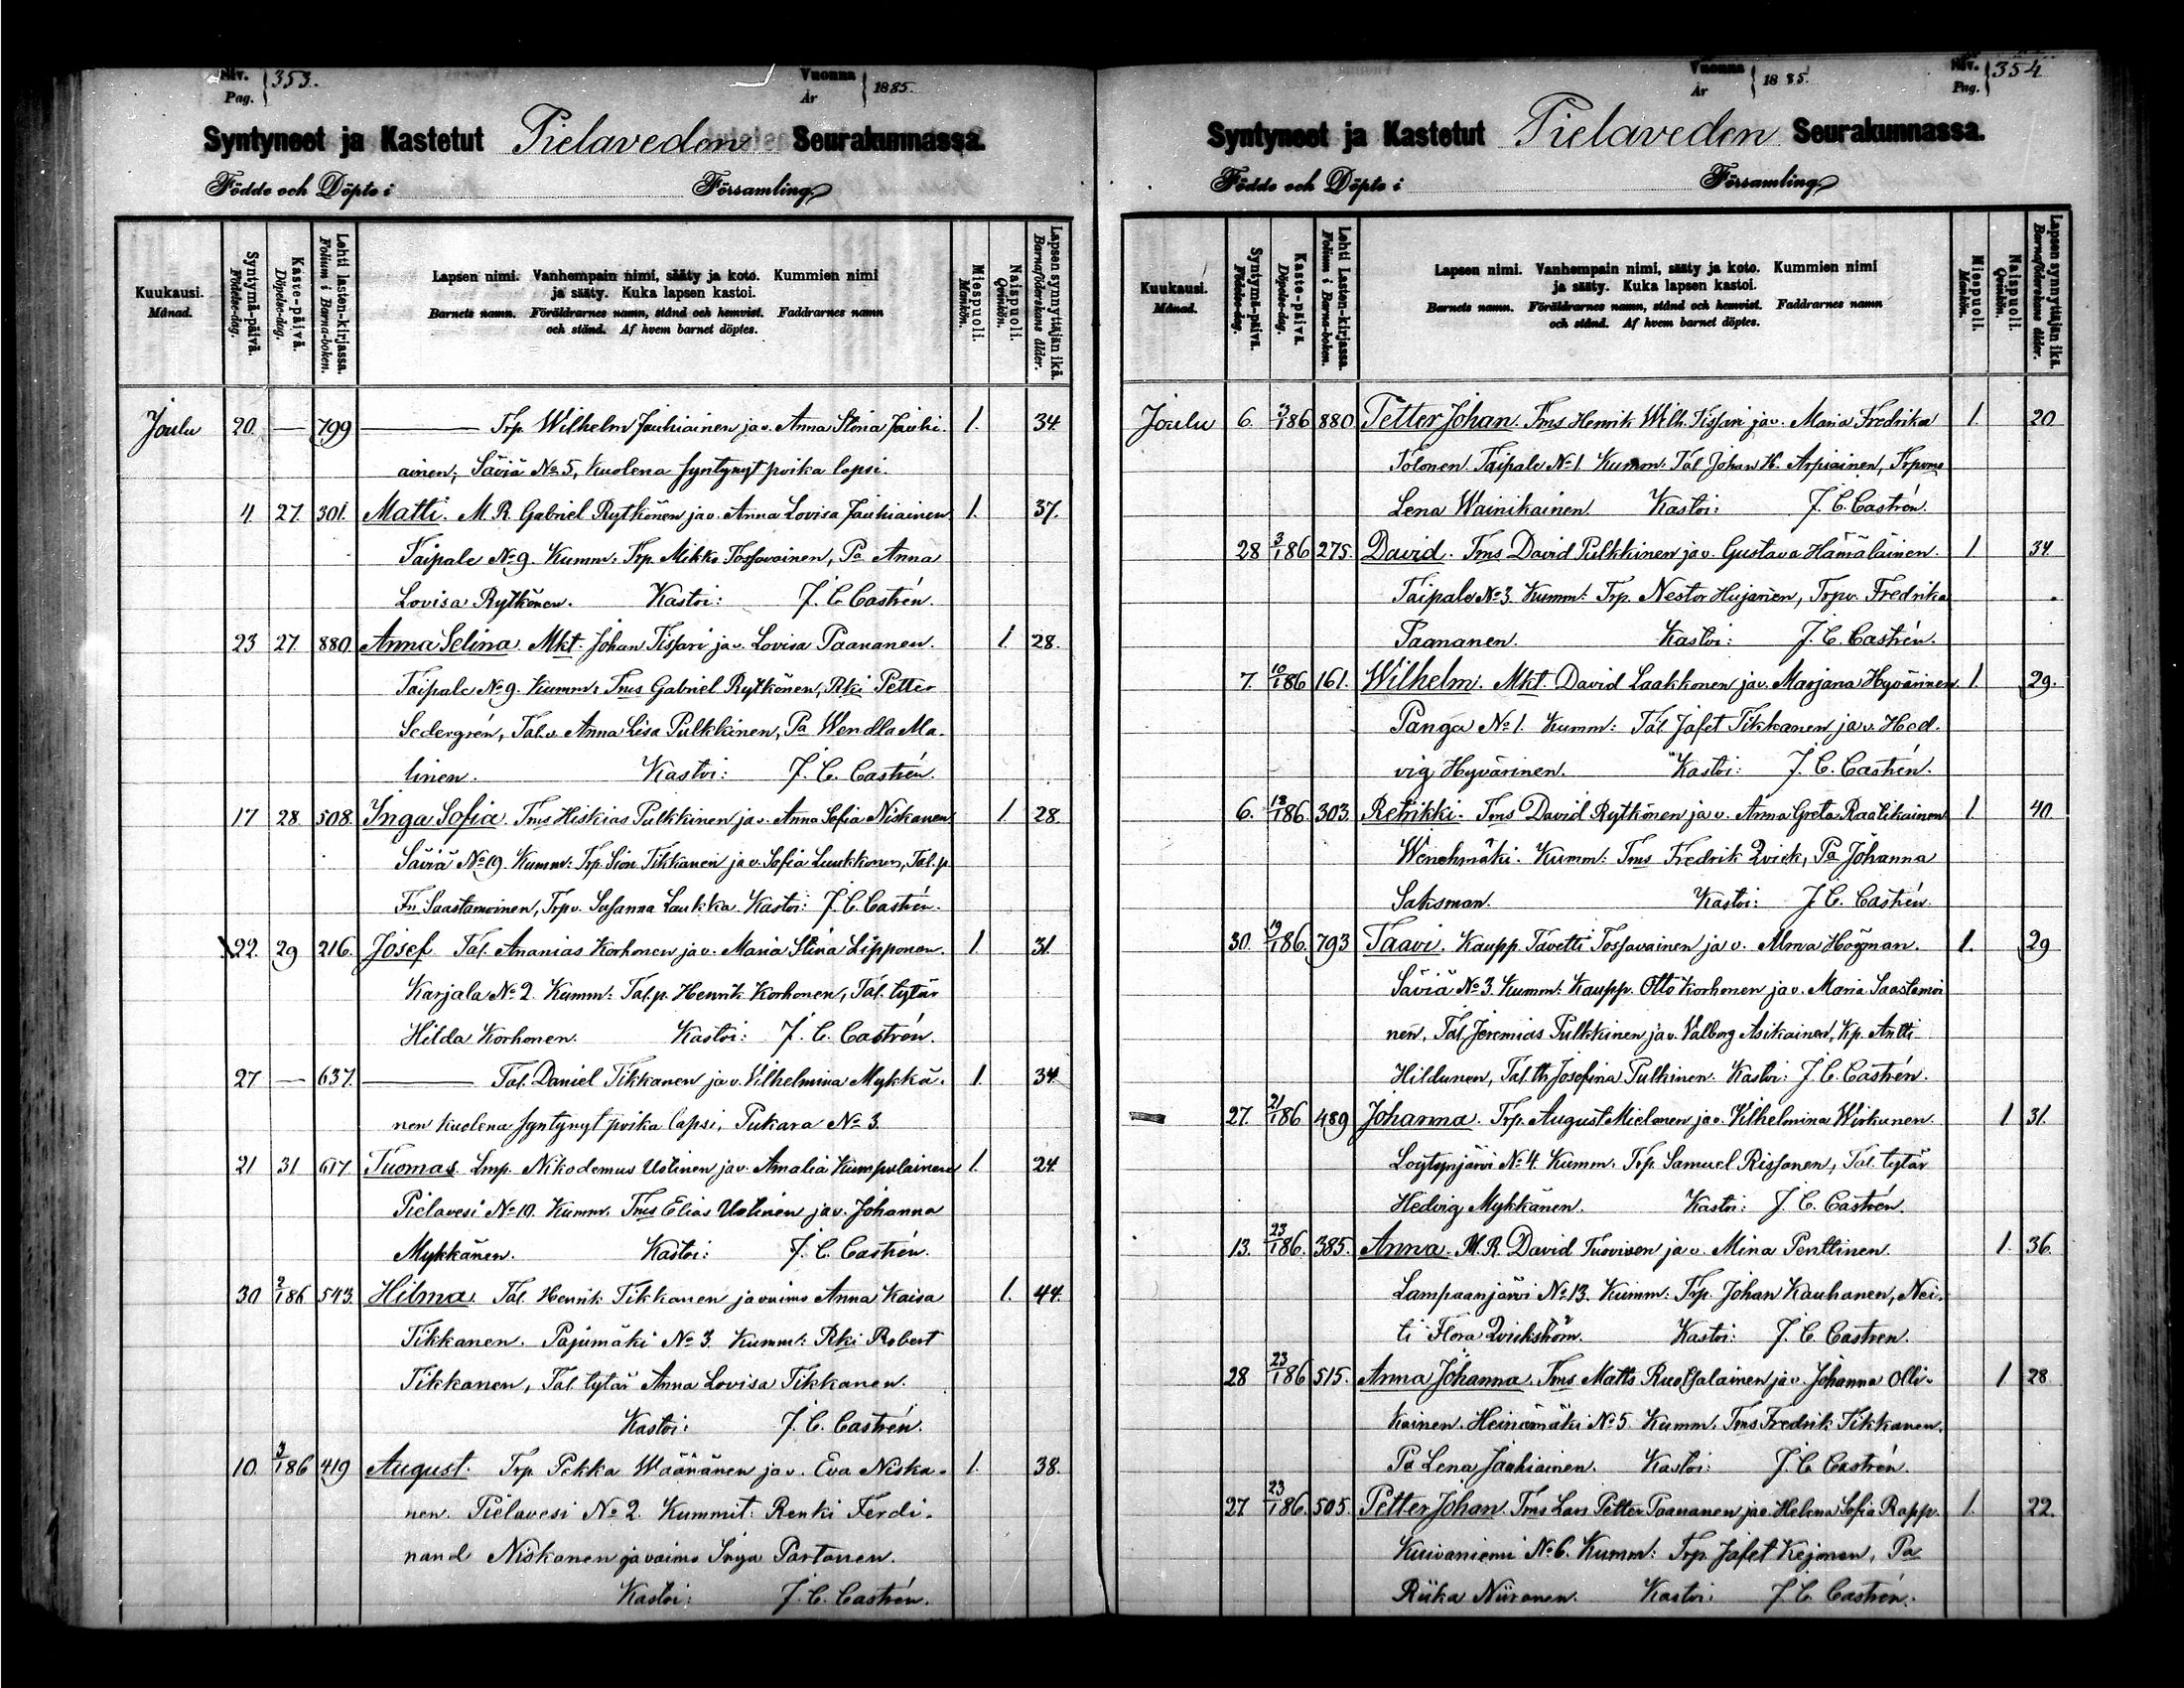 Siv. Pag. 353.
Vuonna År 1885.
Syntyneet ja Kastetut Pielaveden Seurakunnassa.
Födde och Döpte i Församling
Kuukausi. Månad.
Syntymä-päivä. Födelse-dag.
Kaste-päivä. Döpelse-dag.
Lehti lasten-kirjassa. Folium i Barna-boken.
Lapsen nimi. Vanhempain nimi, sääty ja koto. Kummien nimi
ja sääty. Kuka lapsen kastoi.
Barnets namn. Föräldrarnes namn, stånd och hemvist. Faddrarnes namn
och stånd. Af hvem barnet döptes.
Miespuoli. Mankön.
Naispuoli. Qvinkön.
Lapsen synnyttäjän ikä. Barnaföderskans ålder.
Joulu 20. — 799 — Trp. Wilhelm Jauhiainen ja v. Anna Stina Jauhi- 1. 34.
ainen, Säviä No 5, Kuolena syntynyt poika lapsi.
4 27. 301. Matti. M. R. Gabriel Rytkönen ja v. Anna Lovisa Jauhiainen 1. 37.
Taipale No 9. Kumm: Trp. Mikko Tossavainen, Pa Anna
Lovisa Rytkönen. Kastoi: J. C. Castrén.
23 27. 880. Anna Selina. Mkt. Johan Tissari ja v. Lovisa Paananen. 1. 28.
Taipale No 9. Kumm: Tms Gabriel Rytkönen, Rki Petter
Sedergrén, Tal. v. Anna Lisa Pulkkinen, Pa Wendla Ma-
linen. Kastoi: J. C. Castrén.
17 28. 508. Inga Sofia. Tms Hiskias Pulkkinen ja v. Anna Sofia Niskanen 1. 28.
Säviä No 19. Kumm: Trp. Sion Tikkanen ja v. Sofia Luukkonen, Tal. p.
Fr. Saastamoinen, Trp v. Susanna Laukka. Kastoi: J. C. Castrén.
22. 29 216. Josef Tal. Ananias Korhonen ja v. Maria Stina Lipponen. 1. 31.
Karjala No 2. Kumm: Tal. p. Henrik Korhonen, Tal. tytär
Hilda Korhonen. Kastoi: J. C. Castrén.
27 — 637. — Tal. Daniel Tikkanen ja v. Vilhelmina Mykkä- 1. 34.
nen kuolena syntynyt poika lapsi, Pukara No 3.
21 31 617. Tuomas Lmp. Nikodemus Ustinen ja v. Amalia Kumpulainen 1. 24.
Pielavesi No 10. Kumm. Tms Elias Ustinen ja v. Johanna
Mykkänen. Kastoi: J. C. Castrén.
30 2/1 86 543. Hilma. Tal. Henrik Tikkanen ja vaimo Anna Kaisa 1. 44.
Tikkanen. Pajumäki No 3. Kumm: Rki Robert
Tikkanen, Tal. tytär Anna Lovisa Tikkanen.
Kastoi: J. C. Castrén.
10. 3/1 86 419 August. Trp. Pekka Wäänänen ja v. Eva Niska- 1. 38.
nen. Pielavesi No 2. Kummit: Renki Ferdi-
nand Niskanen ja vaimo Inga Partanen.
Kastoi: J. C. Castrén.
Siv. Pag. 354
Vuonna År 1885.
Syntyneet ja Kastetut Pielaveden Seurakunnassa.
Födde och Döpte i Församling
Kuukausi. Månad.
Syntymä-päivä. Födelse-dag.
Kaste-päivä. Döpelse-dag.
Lehti Lasten-kirjassa. Folium i Barna-boken.
Lapsen nimi. Vanhempain nimi, sääty ja koto. Kummien nimi
ja sääty. Kuka lapsen kastoi.
Barnets namn. Föräldrarnes namn, stånd och hemvist. Faddrarnes namn
och stånd. Af hvem barnet döptes.
Miespuoli. Mankön.
Naispuoli. Qvinkön.
Lapsen synnyttäjän ikä. Barnaföderskans ålder.
Joulu 6. 3/1 86 880. Petter Johan. Tms Henrik Wilh. Tissari ja v. Maria Fredrika 1. 20
Tolonen. Taipale No 1. Kumm: Tal. Johan H. Arpiainen,
Lena Wainikainen. Kastoi: J. C. Castrén.
28 3/1 86 275. David. Tms David Pulkkinen ja v. Gustava Hämäläinen. 1 34.
Taipale No 3. Kumm: Trp. Nestor Hujanen, Trpv. Fredrika
Paananen. Kastoi: J. C. Castrén.
7. 10/1 86 161. Wilhelm. Mkt. David Laakkonen ja v. Marjana Hyvärinen 1. 29.
Panga No 1. Kumm: Tal. Jafet Tikkanen ja v. Hed-
vig Hyvärinen. Kastoi: J. C. Castrén.
6. 18/1 86. 303. Retrikki. Tms David Rytkönen ja v. Anna Greta Raatikainen 1. 40.
Wenehmäki. Kumm: Tms Fredrik Qvick, Pa Johanna
Saksman. Kastoi: J. C. Castrén.
30. 19/1 86. 793 Taavi. Kaupp. Tavetti Tossavainen ja v. Alma Hogman. 1. 29
Säviä No 3. Kumm: Kaupp. Otto Korhonen ja v. Maria Saastamoi
nen, Tal. Jeremias Pulkkinen ja v. Valborg Asikainen, Kp. Antti
Hildunen, Tal. th Josefina Pulkinen. Kastoi: J. C. Castrén.
27. 21/1 86 489 Johanna. Trp. August Mielonen ja v. Vilhelmina Wirkunen. 1 31.
Löytynjärvi No 4. Kumm. Trp. Samuel Rissanen, Tal. tytär
Hedvig Mykkänen. Kastoi: J. C. Castrén.
13. 23/1 86. 385. Anna. M. R. David Tuovinen ja v. Mina Penttinen. 1. 36.
Lampaanjärvi No 13. Kumm: Trp. Johan Kauhanen, Nei-
ti Flora Qvickström. Kastoi: J. C. Castren.
28 23/1 86 515. Anna Johanna. Tms Matts Ruotsalainen ja v. Johanna Olli- 1. 28
kainen. Heinämäki No 5. Kumm. Tms Fredrik Tikkanen.
Pa Lena Jauhiainen. Kastoi: J. C. Castrén.
27 23/1 86. 505. Petter Johan. Tms Lars Petter Paananen ja v. Helena Sofia Rapp. 1. 22.
Kuivaniemi No 6. Kumm: Trp. Jafet Kejonen, Pa
Riika Niiranen. Kastoi: J. C. Castrén.